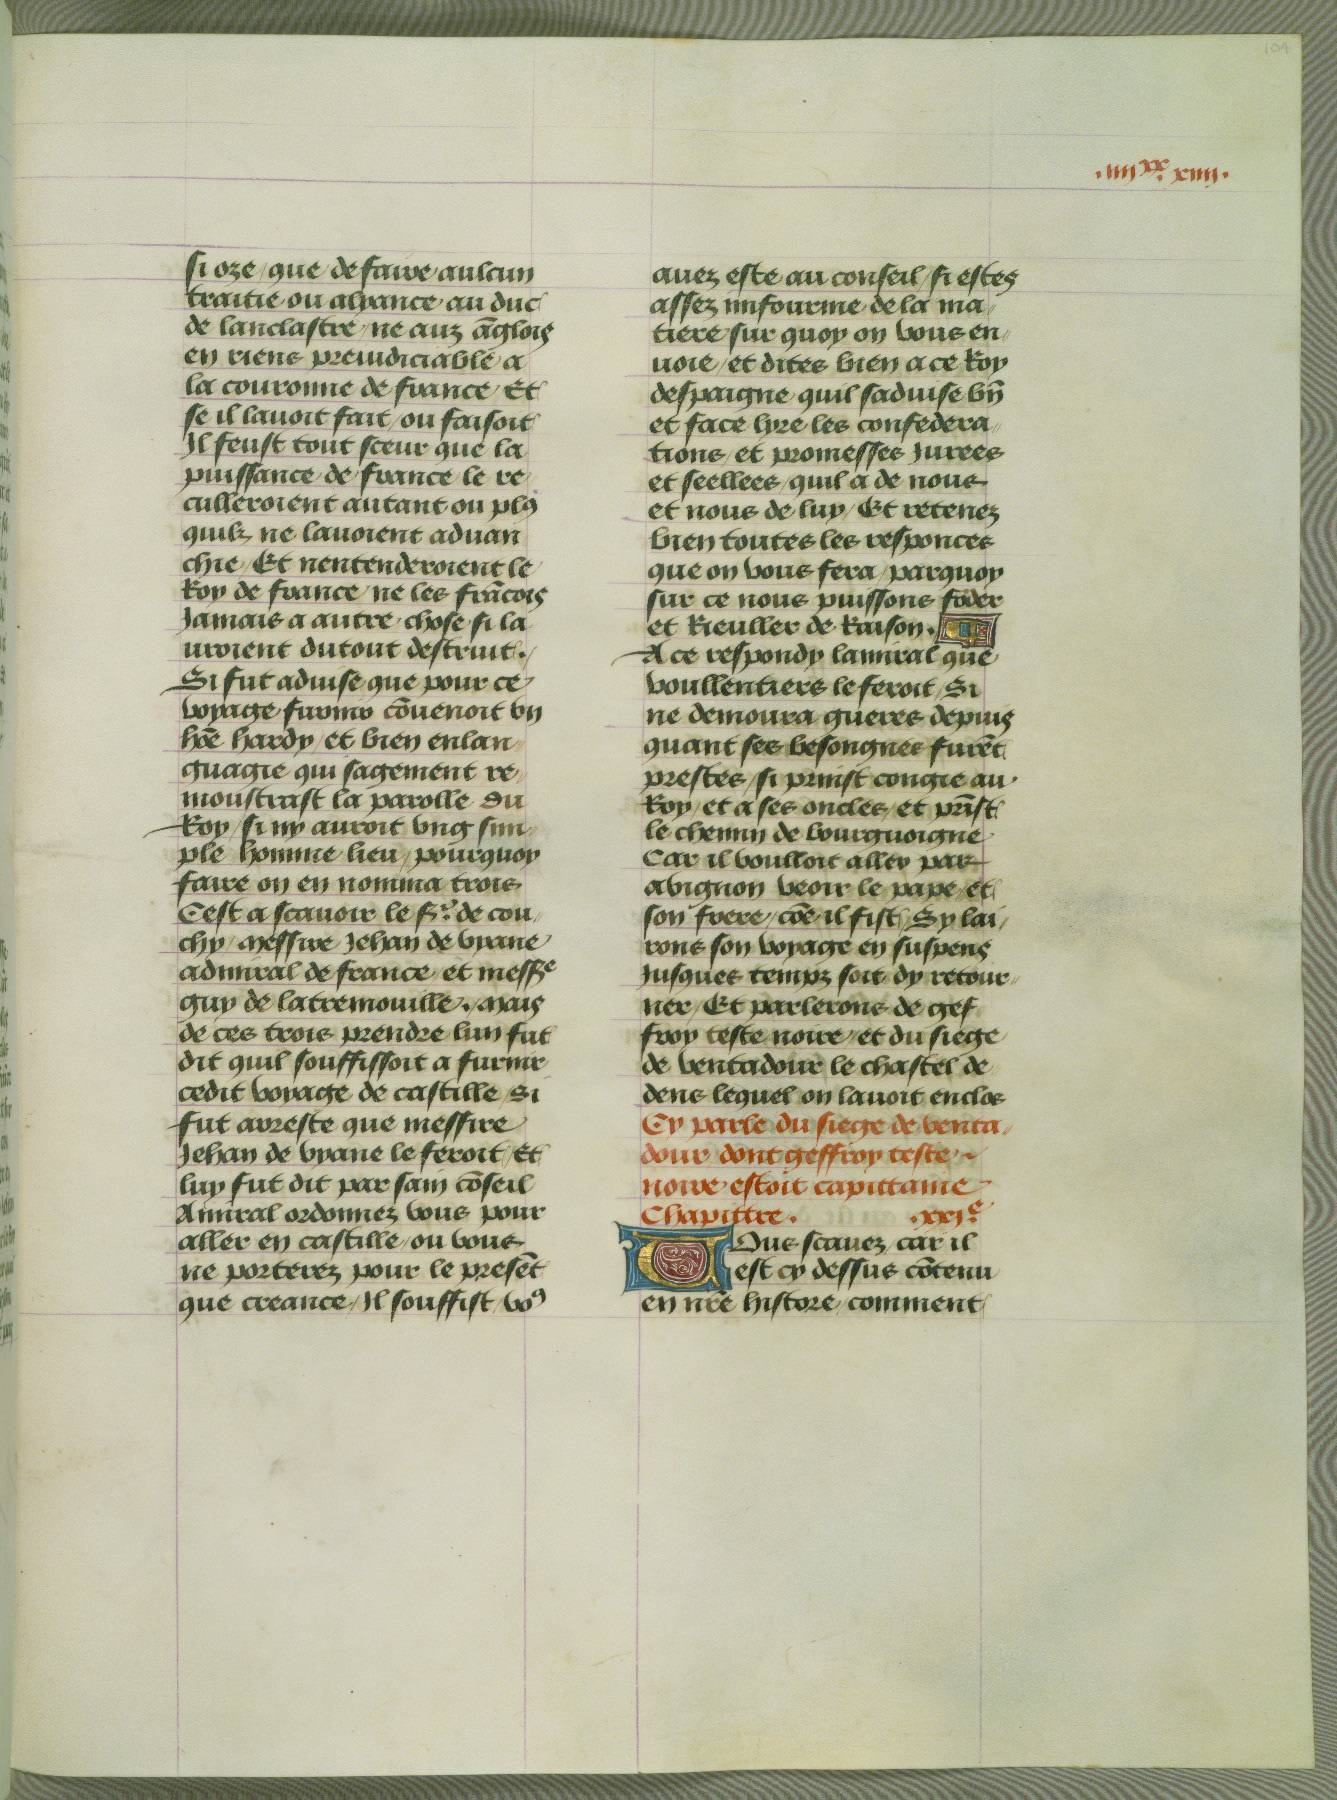 104
.iiii^xx. xiiii.
si oze / que de faire aulcun
traitie ou alyance au duc
de lanclastre / ne auz āglois
en riens preiudiciable a
la couronne de france / Et
se il lauoit fait / ou faisoit
Il feust tout sceur que la
puissance de france le re
culleroient autant ou plꝰ
quilz ne lauoient aduan
chie / Et nentenderoient le
Roy de france / ne les frācois
Jamais a autre chose si la
uroient du tout destruit.
Si fut aduise que pour ce
voyage furnir cōuenoit vn
hōe hardy / et bien enlan
guagie qui sagement re
moustrast la parolle du
Roy / si ny auroit vng sim
ple homme lieu / pourquoy
faire on en nomma trois
Cest a scauoir le sʳ. de cou
chy / messire Jehan de vyane
admiral de france / et messᵉ
guy de latremouille. / Mais
de ces trois prendre lun fut
dit quil souffissoit a furnir
cedit voyage de castille / Si
fut arreste que messire
Jehan de vyane le feroit / Et
luy fut dit par sain cōseil
Amiral ordonnez vous pour
aller en castille / ou vous
ne porterez pour le presēt
que creance / Il souffist / voꝰ
auez este au conseil / si estes
assez imfourme de la ma
tiere / sur quoy on vous en
uoie / et dites bien a ce Roy
despaigne quil saduise bn̄
et face lyre les confedera
tions / et promesses Jurees
et seellees / quil a de nous
et nous de luy / Et retenez
bien toutes les responces
que on vous fera / parquoy
sur ce nous puissons fōder
et Rieuller de Raison.
A ce respondy lamiral que
voullentiers le feroit / Si
ne demoura gueres depuis
quant ses besongnes furēt
prestes / si prinst congie au
Roy / et a ses oncles / et prīst
le chemin de bourguoigne
Car il voulloit aller par
avignon veoir le pape / et
son frere / cōe il fist / Sy lai
rons son voyage en suspens
Jusques tempz soit dy retour
ner / Et parlerons de gef
froy teste noire / et du siege
de ventadour le chastel de
dens lequel on lauoit enclos
Cy parle du siege de venta
dour dont geffroy teste
noire estoit capittaine
Chapittre. .xxiᵉ.
Vous scauez / car il
est cy dessus cōtenu
en nr̄e histore / comment